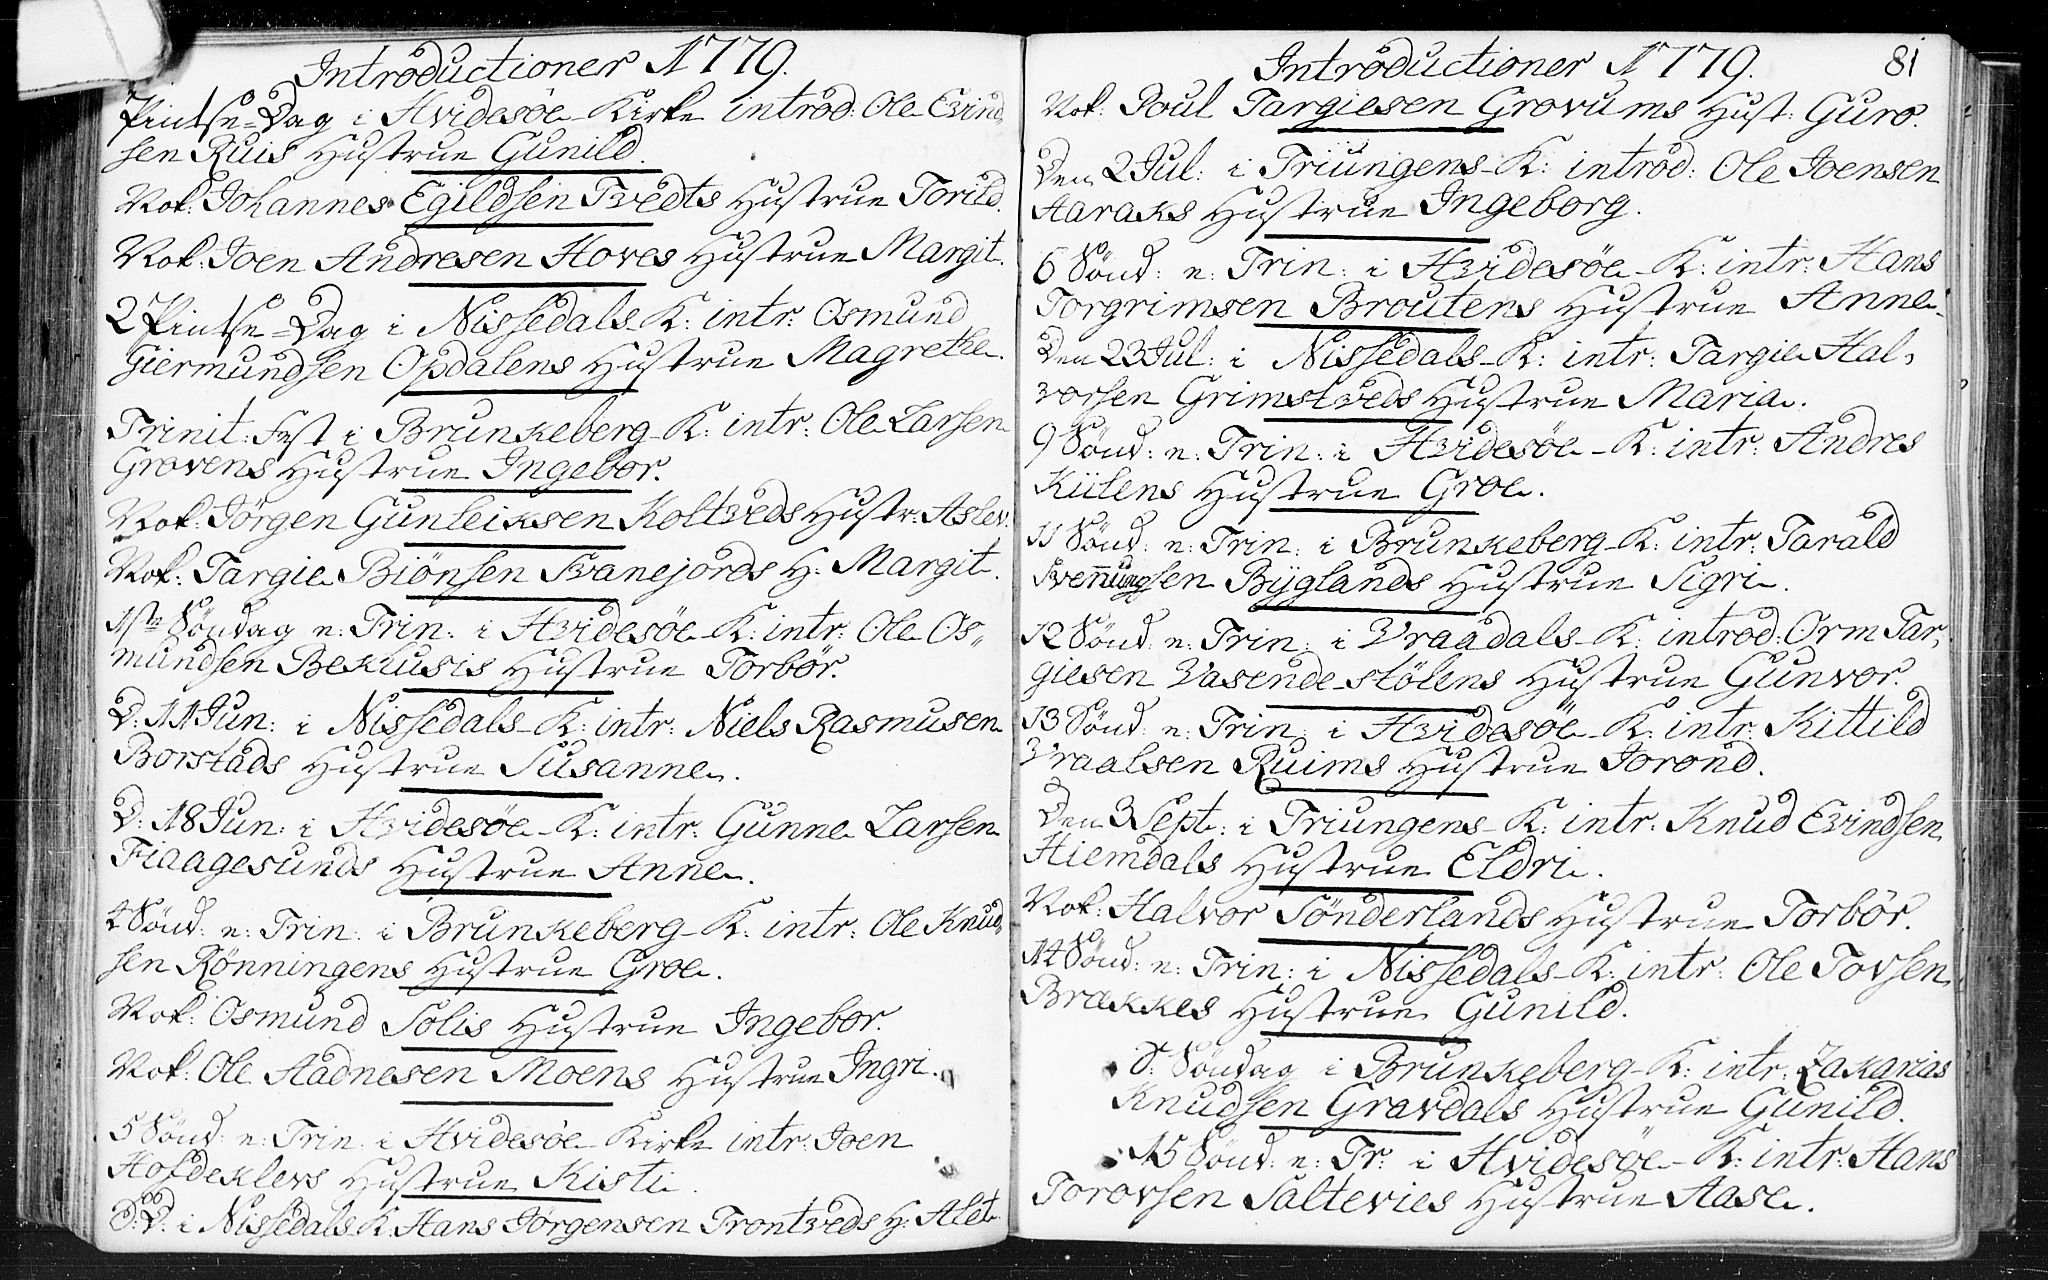 Introductioner 1779.
Pintse-Dag i Hvidesøe Kirke introd: Ole Evind„
sen Ruis Hustrue Gunild.
Nok: Johannes Egildsen Tvedts Hustrue Torild.
Nok: Joen Andresen Hoves Hustrue Margit.
2 Pintse-Dag i Nissedals K: intr: Osmund
Giermundsen Opdalens Hustrue Magrethe.
Trinit: Fest i Brunkeberg K: intr: Ole Larsen
Grovens Hustrue Ingebor.
Nok: Jørgen Gunleiksen Koltveds Hustr: Aslev.
Nok: Targie Biönsen Svanejords H: Margit.
1ste Söndag n: Trin: i Hvidesøe K: intr: Ole Os„
mundsen Bekuusis Hustrue Torbör.
D: 11 Jun: i Nissedals K: intr: Niels Rasmusen
Borstads Hustrue Susanne.
D: 18 Jun: i Hvidesøe K: intr: Gunne Larsen
Fiaagesunds Hustrue Anne.
4 Sönd: n: Trin: i Brunkeberg K: intr: Ole Knud„
sen Rönningens Hustrue Groe.
Nok: Osmund Solis Hustrue Ingebor.
Nok: Ole Aadnesen Moens Hustrue Ingri.
5 Sönd: n: Trin: i Hvidesøe Kirke intr: Joen
Hofdeklevs Hustrue Kisti.
D: D: i Nissedals K: Hans Jørgensen Trontveds H: Alet.
Introductioner 1779. 81
Nok: Poul Targiesen Grovums Hust: Guro.
Den 2 Jul: i Triungens K: introd: Ole Joensen
Aaraks Hustrue Ingeborg.
6 Sönd: n: Trin: i Hvidesøe K: intr: Hans
Torgrimsen Broutens Hustrue Anne.
Den 23 Jul: i Nissedals K: intr: Targie Hal„
vorsen Grimstveds Hustrue Maria.
9 Sönd: n: Trin: i Hvidesøe K: intr: Andres
Kiilens Hustrue Groe.
11 Sönd: n: Trin: i Brunkeberg K: intr: Tarald
Svennungsen Byglands Hustrue Sigri.
12 Sönd: n: Trin: i Vraadals K: introd: Orm Tar„
giesen Vasende-stölens Hustrue Gunvor.
13 Sönd: n: Trin: i Hvidesøe K: intr: Kittild
Vraalsen Ruims Hustrue Jorond.
Den 3 Sept: i Triungens K: intr: Knud Evindsen
Hiemdals Hustrue Eldri.
Nok: Halvor Sönderlands Hustrue Torbör.
14 Sönd: n: Trin: i Nissedals K: intr: Ole Tovsen
Brækkes Hustrue Gunild.
d: Söndag i Brunkeberg K: intr: Zakarias
Knudsen Gravdals Hustrue Gunild.
15 Sönd: n: Tr: i Hvidesøe K: intr: Hans
Torovsen Saltevies Hustrue Aase.